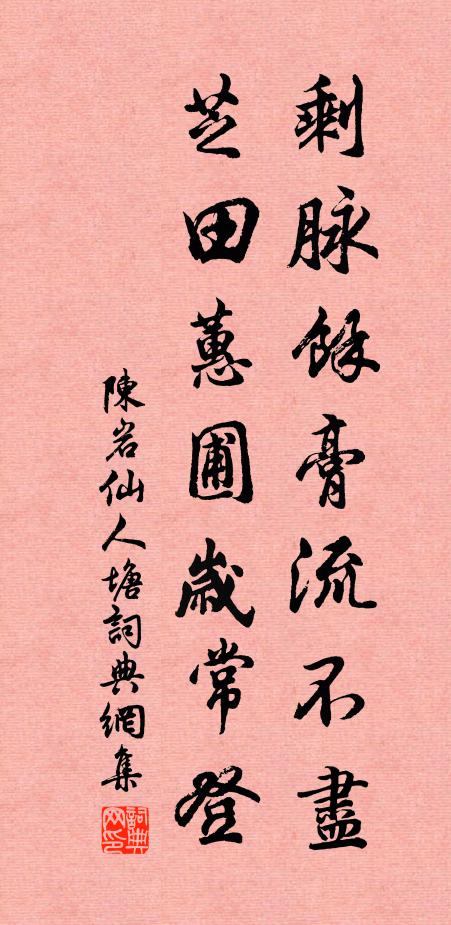 剩脉餘膏流不盡
芝田蕙圃歲常登
陳岩仙人塘詞典網集
詞典网印